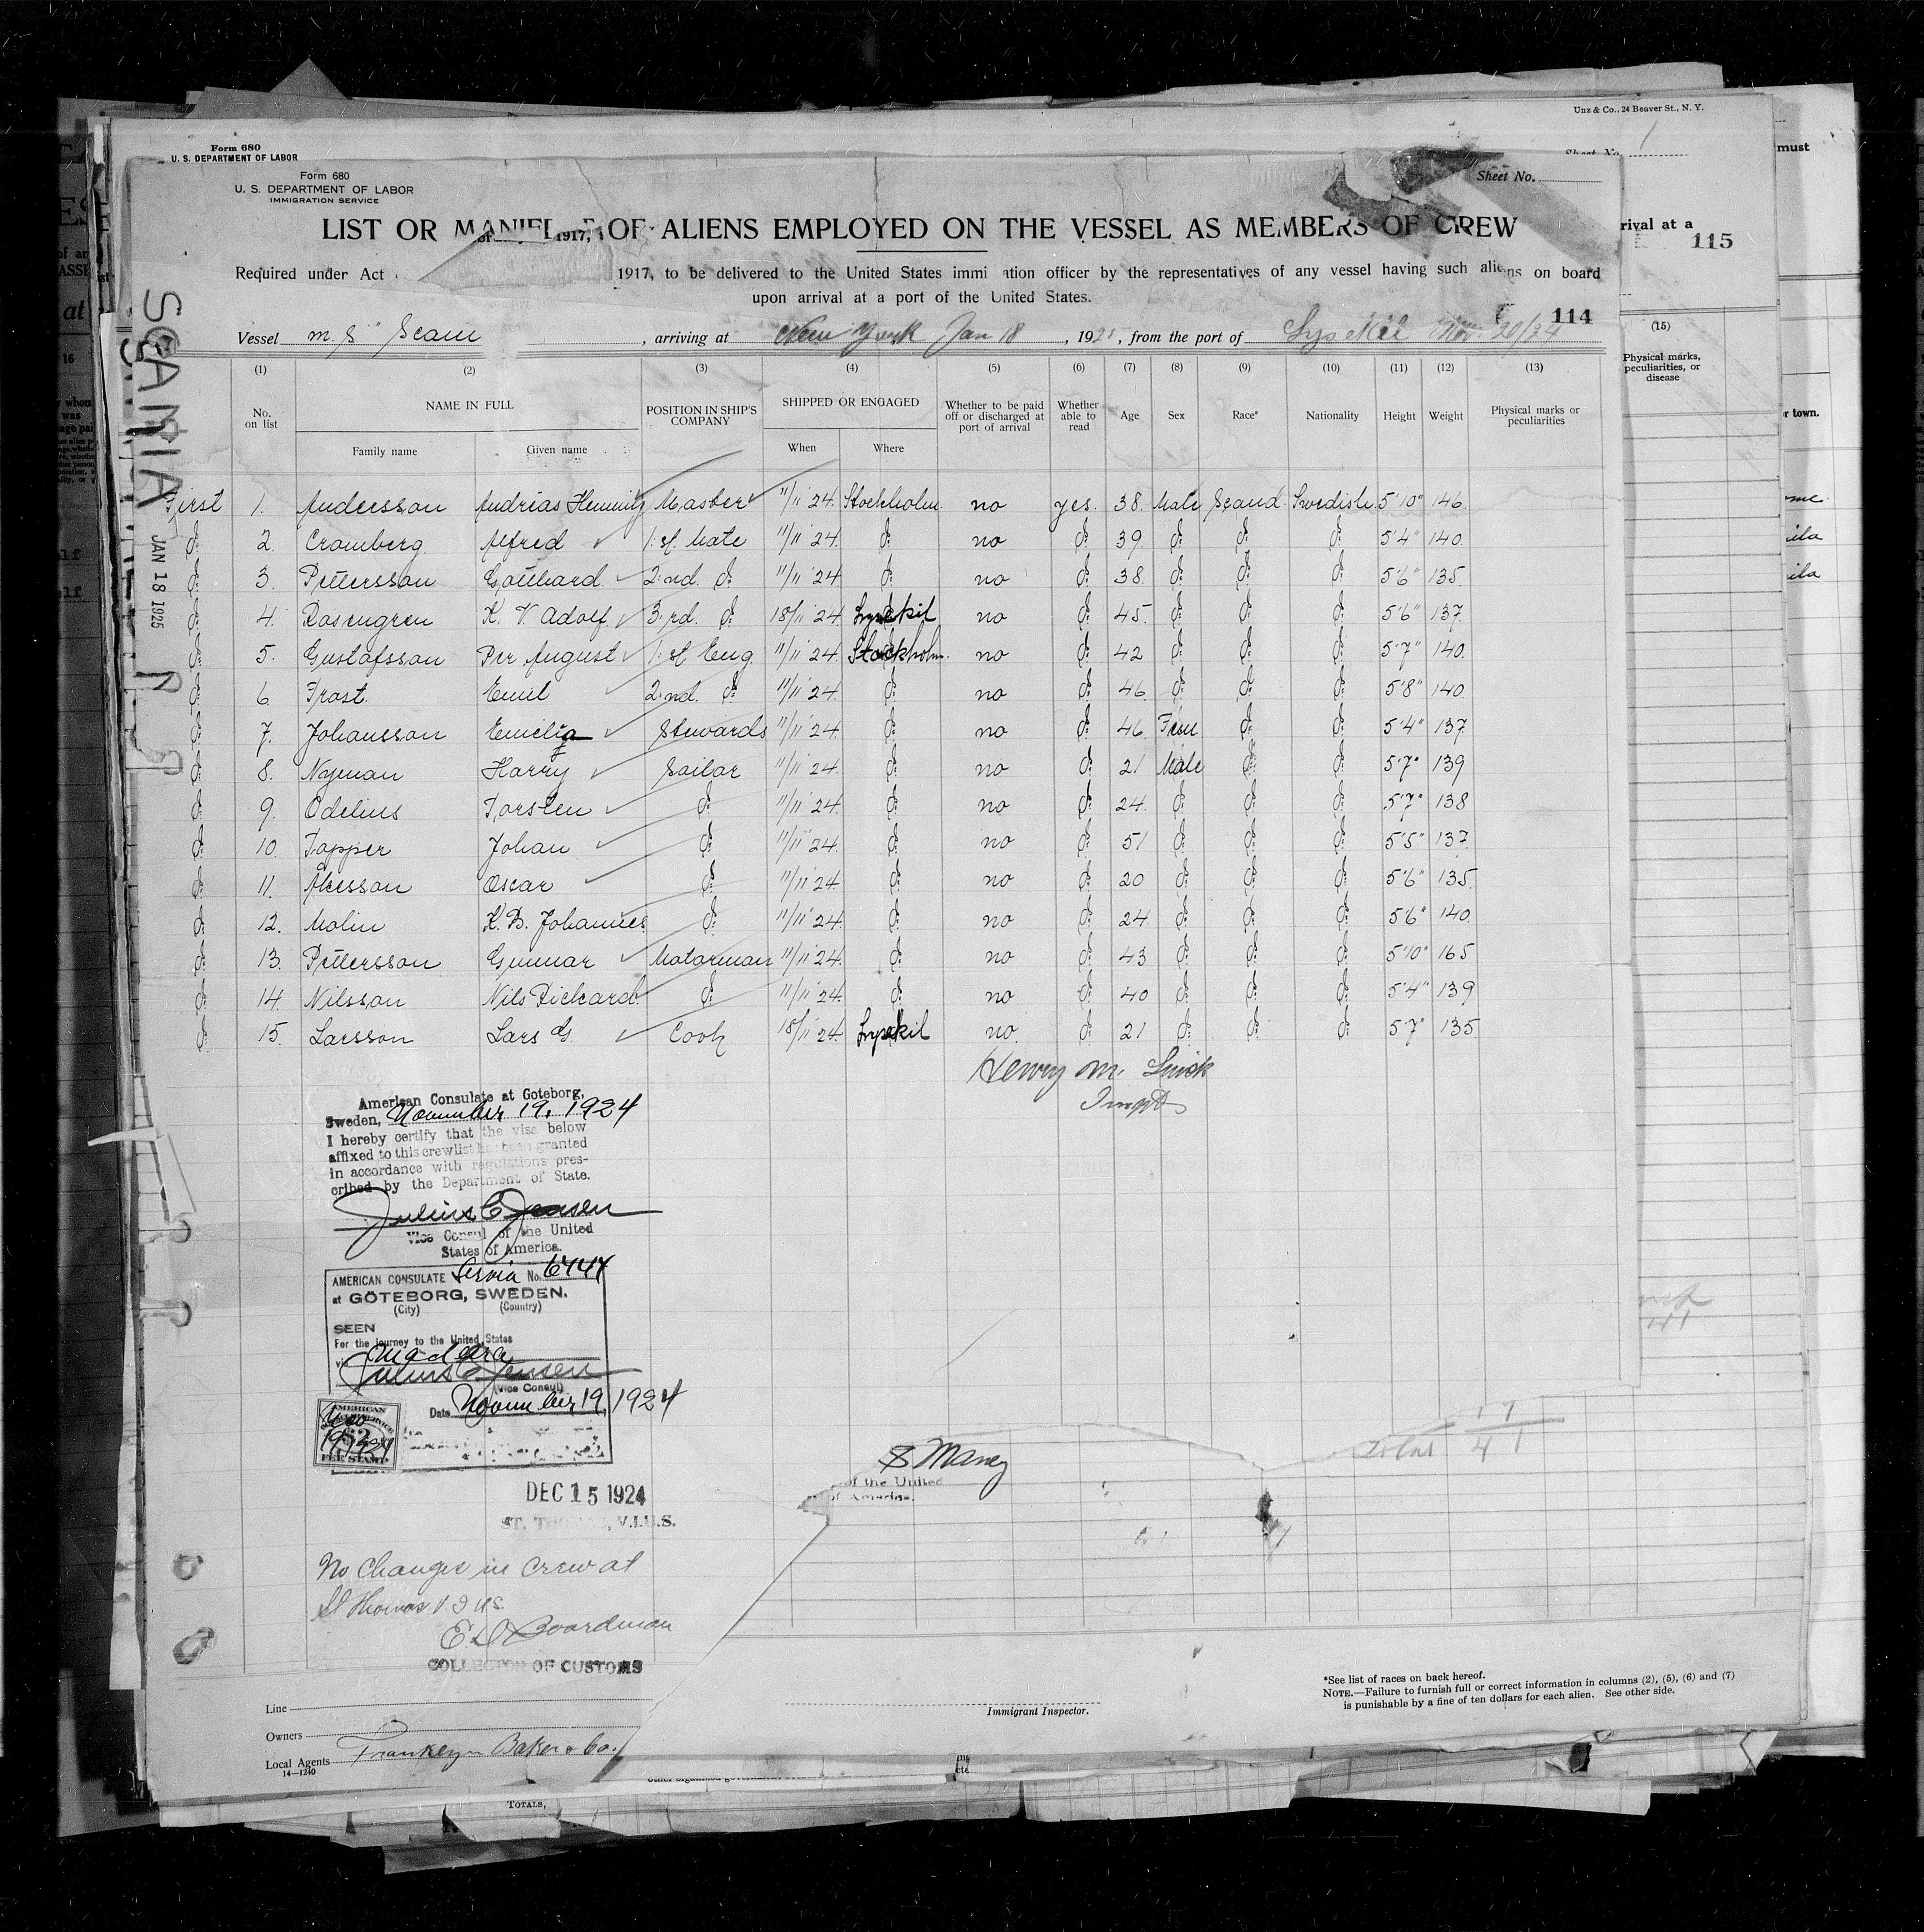 Unz & Co., 24 Beaver St., N. Y.
Form 680
U. S. DEPARTMENT OF LABOR
Sheet No. 1
must
Form 680
U. S. DEPARTMENT OF LABOR
IMMIGRATION SERVICE
Sheet No.
LIST OR MANIFEST OF ALIENS EMPLOYED ON THE VESSEL AS MEMBERS OF CREW
rival at a
115
Required under Act 1917, to be delivered to the United States immi ation officer by the representatives of any vessel having such aliens on board
upon arrival at a port of the United States.
114
Vessel m. S. , arriving at New York Jan 18 , 192 , from the port of Lysekil Nov. 20/24
SCANIA
JAN 18 1925
(1) (2) (3) (4) (5) (6) (7) (8) (9) (10) (11) (12) (13) (15)
No. on list NAME IN FULL Family name Given name POSITION IN SHIP'S COMPANY SHIPPED OR ENGAGED When Where Whether to be paid off or discharged at port of arrival Whether able to read Age Sex Race* Nationality Height Weight Physical marks or peculiarities
Physical marks, peculiarities, or disease
r town.
First 1. Andersson Andrias Master 11/11 24. Stockholm no yes. 38. Male Scand. Swedish. 5'10" 146.
do 2. Cromberg Alfred 1:st. Mate 11/11 24. do no do 39. do do do 5'4" 140.
do 3. Pettersson Gotthard 2:nd. do 11/11 24 do no do 38. do do do 5'6" 135.
do 4. Rosengren K. V. Adolf. 3:rd. do 18/11 24 Lysekil no do 45. do do do 5'6" 137.
do 5. Gustafsson Per August 1:st Eng. 11/11 24. Stockholm. no do 42 do do do 5'7" 140.
do 6. Frost. Emil 2:nd. do 11/11 24. do no do 46 do do do 5'8" 140.
do 7. Johansson Emelia Stewards 11/11 24. do no do 46. Fem do do 5'4" 137
do 8. Nyman Harry Sailor 11/11 24. do no do 21 Male do do 5'7" 139
do 9. Odelius Torsten do 11/11 24 do no do 24. do do do 5'7" 138
do 10. Topper Johan do 11/11 24. do no do 51 do do do 5'5" 137.
do 11. Oscar do 11/11 24. do no do 20 do do do 5'6" 135.
do 12. Molin K. B. Johannes do 11/11 24. do no do 24. do do do 5'6" 140.
do 13. Pettersson Gunnar Motorman 11/11 24. do no do 43 do do do 5'10" 165
do 14. Nilsson Nils Richard do 11/11 24. do no do 40 do do do 5'4" 139
do 15. Larsson Lars G. Cook 18/11 24. Lysekil no. do 21 do do do 5'7" 135.
Henry M.
American Consulate at Goteborg,
Sweden, November 19, 1924
I hereby certify that the visa below
affixed to this crewlist has been granted
in accordance with regulations pres-
cribed by the Department of State.
Julius C Jensen
Vice Consul of the United
States of America.
AMERICAN CONSULATE No. 6444
at GÖTEBORG, SWEDEN.
(City) (Country)
SEEN
For the journey to the United States
via Madeira
Julius C Jensen
(Vice Consul)
Date November 19, 1924
AMERICAN
FEE STAMP
Total 17
41
of the United
of America.
DEC 15 1924
ST. THOMAS, V.I.U.S.
No changes in crew at
St Thomas V. I U.S.
Boardman
COLLECTOR OF CUSTOMS
*See list of races on back hereof.
NOTE.—Failure to furnish full or correct information in columns (2), (5), (6) and (7)
is punishable by a fine of ten dollars for each alien. See other side.
Immigrant Inspector.
Line
Owners
Local Agents Baker & Co.
14—1240
TOTALS,